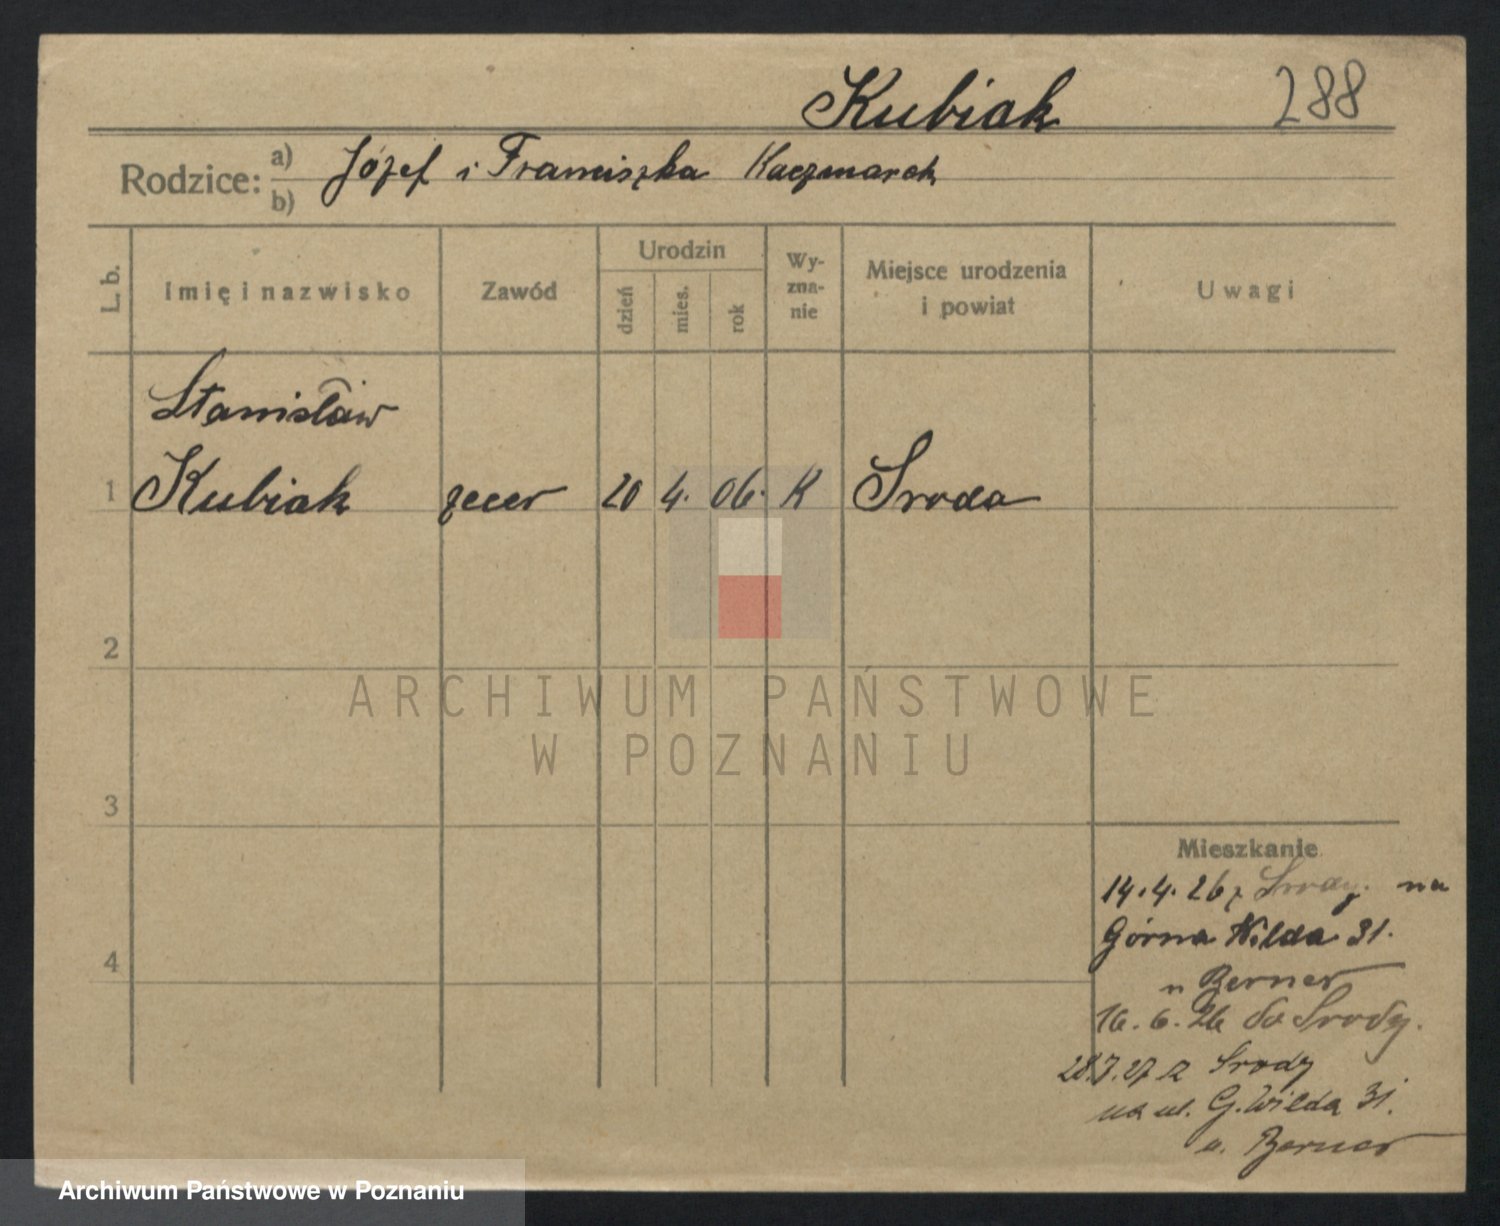 Kubiak 288
Rodzice: a) b) Józef i Franciszka Kaczmarek
L. b.
Imię i nazwisko
Zawód
Urodzin
dzień
mies.
rok
Wy-
zna-
nie
Miejsce urodzenia
i powiat
Uwagi
Stanisław
1 Kubiak zecer 20 4. 06. K Środa
2
ARCHIWUM PAŃSTWOWE
W POZNANIU
3
Mieszkanie
14.4.26 z Środy. na
Górna Wilda 31.
4
u Berner
16.6.26 do Środy.
28.7.27 z Srody
na ul. G. Wilda 31.
u. Berner
Archiwum Państwowe w Poznaniu